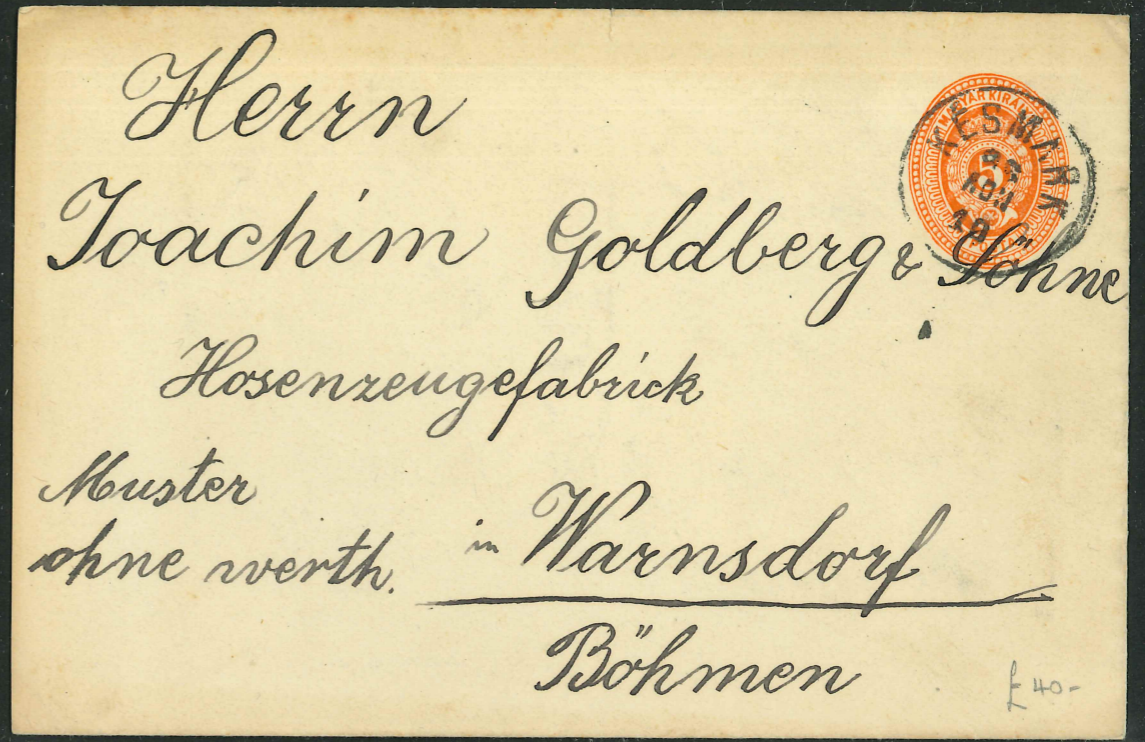 Herrn
Joachim Goldberg & Söhne
Hosenzeugefabrick
Muster
ohne werth.
in Warnsdorf
Böhmen
MAGYAR KIRÁLY
5
KÉSMÁRK
£ 40-